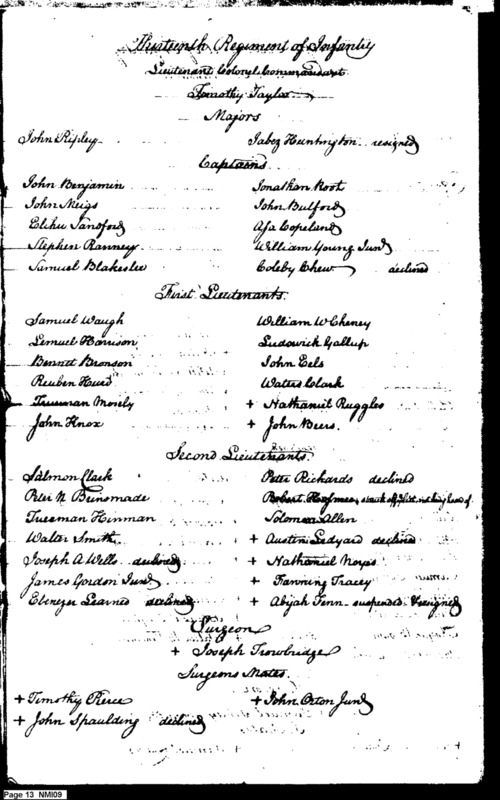 Thirteenth Regiment of Infantry
Lieutenant Colonel Commandant
Timothy Taylor
Majors
John Ripley Jabez Huntington resigned
Captains
John Benjamin Jonathan Root
John Meigs John Bulford
Elihu Sandford Asa Copeland
Stephen Ranney William Young Junr
Samuel Blakeslee Coleby Chew declined
First Lieutenants
Samuel Waugh William W Cheney
Lemuel Harrison Ludowick Gallup
Bennet Bronson John Eels
Reuben Hurd Waters Clark
Trueman Mosely + Nathaniel Ruggles
John Knox + John Beers.
Second Lieutenants
Salmon Clark Peter Rickards declined
Peter N Beinsmade Robert Hosmer, struck off list
Trueman Hinman Solomon Allen
Walter Smith + Austin Ledyard declined
Joseph A Wells declined + Nathaniel Noyes
James Gordon Junr + Fanning Tracey
Ebenezer Learned declined + Abijah Fenn suspended & resigned
Surgeon
+ Joseph Trowbridge
Surgeons Mates.
+ Timothy Pierce + John Orton Junr
+ John Spaulding declined
Page 13 NMI09